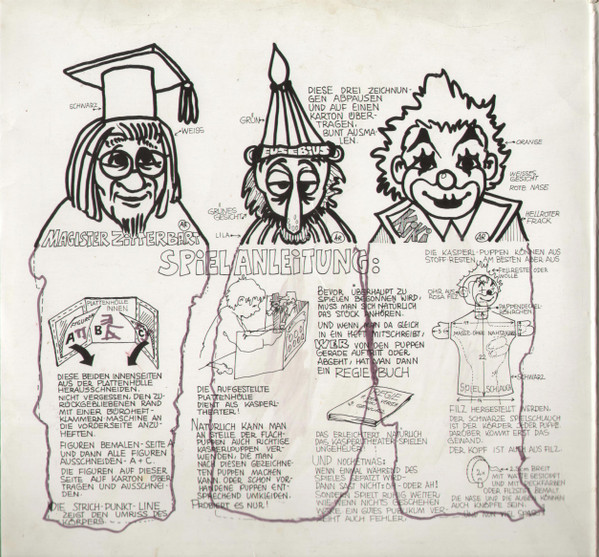 SCHWARZ
WEISS
GRÜN
EUSEBIUS
DIESE DREI ZEICHNUN-
GEN ABPAUSEN
UND AUF EINEN
KARTON ÜBER-
TRAGEN.
BUNT AUSMA-
LEN.
ORANGE
WEISSES
GESICHT
ROTE NASE
HELLROTER
FRACK
GRÜNES
GESICHT
LILA
MAGISTER ZITTERBART
SPIELANLEITUNG:
PLATTENHÜLLE
INNEN
FIGUREN
A
B
C
DIESE BEIDEN INNENSEITEN
AUS DER PLATTENHÜLLE
HERAUSSCHNEIDEN.
NICHT VERGESSEN, DEN ZU-
RÜCKGEBLIEBENEN RAND
MIT EINER BÜROHEFT-
KLAMMERN-MASCHINE AN
DIE VORDERSEITE ANZU-
HEFTEN.
FIGUREN BEMALEN - SEITE A
UND DANN ALLE FIGUREN
AUSSCHNEIDEN - A + C.
DIE FIGUREN AUF DIESER
SEITE AUF KARTON ÜBER-
TRAGEN UND AUSSCHNEI-
DEN.
DIE STRICH-PUNKT-LINE
ZEIGT DEN UMRISS DES
KÖRPERS.
DIE AUFGESTELLTE
PLATTENHÜLLE
DIENT ALS KASPERL-
THEATER!
NATÜRLICH KANN MAN
AN STELLE DER FLACH-
PUPPEN AUCH RICHTIGE
KASPERLPUPPEN VER-
WENDEN, DIE MAN
NACH DIESEN GEZEICHNE-
TEN PUPPEN MACHEN
KANN ODER SCHON VOR-
HANDENE PUPPEN ENT-
SPRECHEND UMKLEIDEN.
PROBIERT ES NUR!
BEVOR ÜBERHAUPT ZU
SPIELEN BEGONNEN WIRD,
MUSS MAN SICH NATÜRLICH
DAS STÜCK ANHÖREN.
UND WENN MAN DA GLEICH
IN EIN HEFT MITSCHREIBT,
WER VON DEN PUPPEN
GERADE AUFTRITT ODER
ABGEHT, HAT MAN DANN
EIN REGIEBUCH
REGIE
DAS ERLEICHTERT NATÜRLICH
DAS KASPERLTHEATER-SPIELEN
UNGEHEUER!
UND NOCH ETWAS:
WENN EINMAL WÄHREND DES
SPIELES GEPATZT WIRD-
DANN SAGT NICHT-ÖH- ODER AH!
SONDERN SPIELT RUHIG WEITER,
WENN NICHTS GESCHEHEN
EIN GUTES PUBLIKUM VER-
AUCH FEHLER.
DIE KASPERL-PUPPEN KÖNNEN AUS
STOFF-RESTEN, AM BESTEN ABER AUS
FELLRESTE ODER
WOLLE
OHR AUS
ROSA FILZ
PAPPENDECKEL-
RÖHRCHEN
SPIEL SCHLAUCH
SCHWARZ
FILZ HERGESTELLT WERDEN.
DER SCHWARZE SPIELSCHLAUCH
IST DER KÖRPER DER PUPPE.
DARÜBER KOMMT ERST DAS
GEWAND.
DER KOPF IST AUCH AUS FILZ.
BREIT
MIT WATTE GESTOPFT
UND MIT DECKFARBEN
ODER FILZSTIFT BEMALT
DIE NASE UND DIE AUGEN KÖNNEN
AUCH KNÖPFE SEIN.